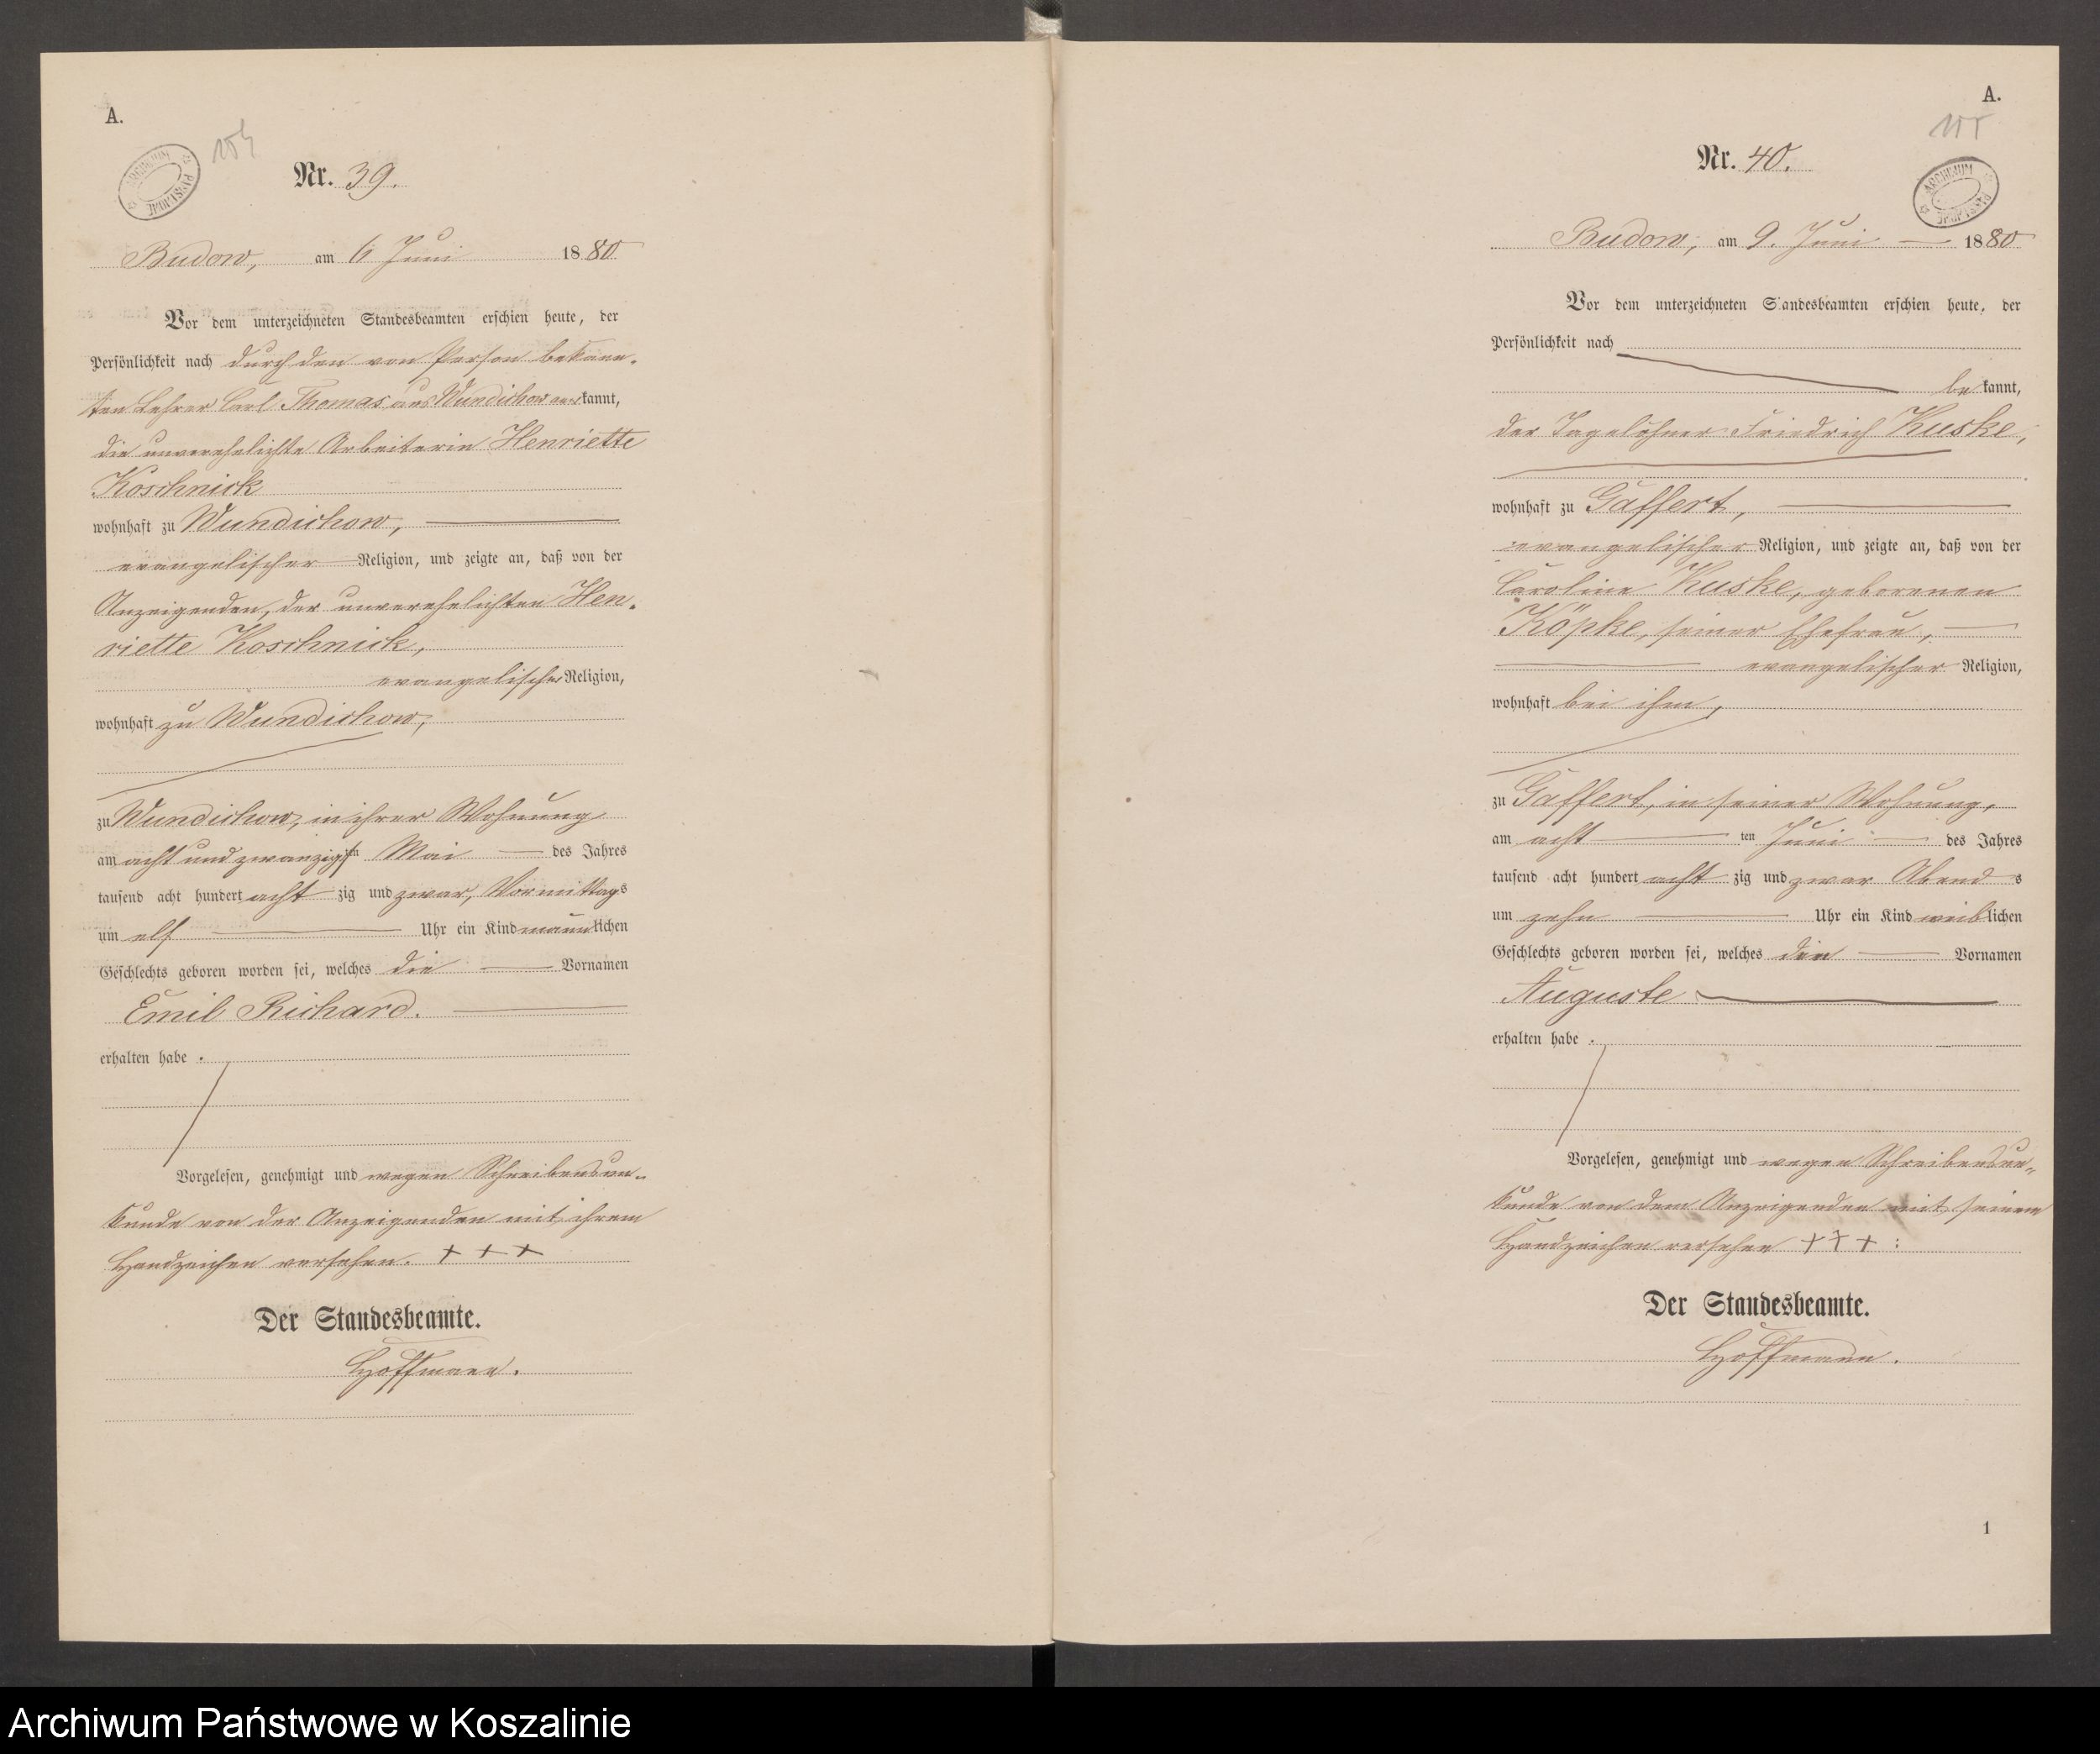 A.
154
ARCHIWUM PAŃSTWOWE
Nr. 39.
Budow, am 6 Juni 1880
Vor dem unterzeichneten Standesbeamten erschien heute, der
Persönlichkeit nach durch den von Person bekann-
ten Lehrer Carl Thomas aus Wundichow anerkannt,
die unverehelichte Arbeiterin Henriette
Koschnick
wohnhaft zu Wundichow,
evangelischer Religion, und zeigte an, daß von der
Anzeigenden, der unverehelichten Hen-
riette Koschnick,
evangelischer Religion,
wohnhaft zu Wundichow,
zu Wundichow, in ihrer Wohnung
am acht und zwanzigsten Mai des Jahres
tausend acht hundert achtzig und zwar, Vormittags
um elf Uhr ein Kind männlichen
Geschlechts geboren worden sei, welches die Vornamen
Emil Richard.
erhalten habe.
Vorgelesen, genehmigt und wegen Schreibensun-
kunde von der Anzeigenden mit ihrem
Handzeichen versehen. + + +
Der Standesbeamte.
Hoffmann.
A.
155
ARCHIWUM PAŃSTWOWE
Nr. 40.
Budow, am 9. Juni 1880
Vor dem unterzeichneten Standesbeamten erschien heute, der
Persönlichkeit nach
bekannt,
der Tagelöhner Friedrich Kuske,
wohnhaft zu Gaffert,
evangelischer Religion, und zeigte an, daß von der
Caroline Kuske, geborenen
Köpke, seiner Ehefrau,
evangelischer Religion,
wohnhaft bei ihm,
zu Gaffert, in seiner Wohnung,
am acht ten Juni des Jahres
tausend acht hundert achtzig und zwar Abends
um zehn Uhr ein Kind weiblichen
Geschlechts geboren worden sei, welches den Vornamen
Auguste
erhalten habe.
Vorgelesen, genehmigt und wegen Schreibensun-
kunde von dem Anzeigenden mit seinem
Handzeichen versehen + + + :
Der Standesbeamte.
Hoffmann.
1
Archiwum Państwowe w Koszalinie